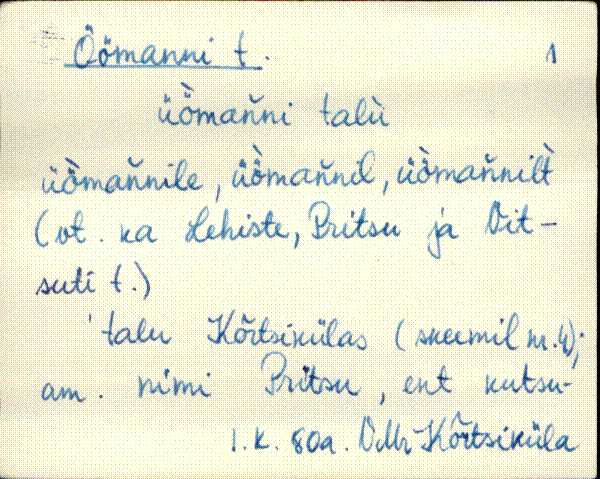 Öömanni t. 1
üòmaňni talù
üòmaňnile, üòmaňnil, üòmaňnilt̀
(vt. ka Lehiste, Pritsu ja Vit-
suti t.)
talu Kõrtsikülas (skeemil nr. 4);
am. nimi Pritsu, ent kutsu-
I. k. 80a. VMr Kõrtsiküla